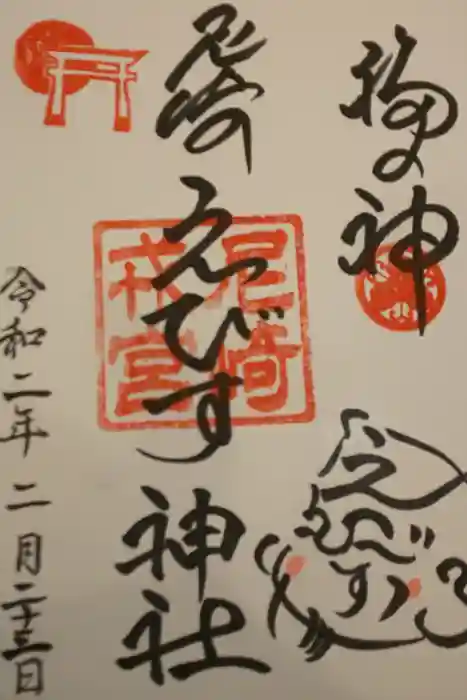 福の神
えびす
尼崎えびす神社
尼崎
戎宮
令和二年 二月二十三日